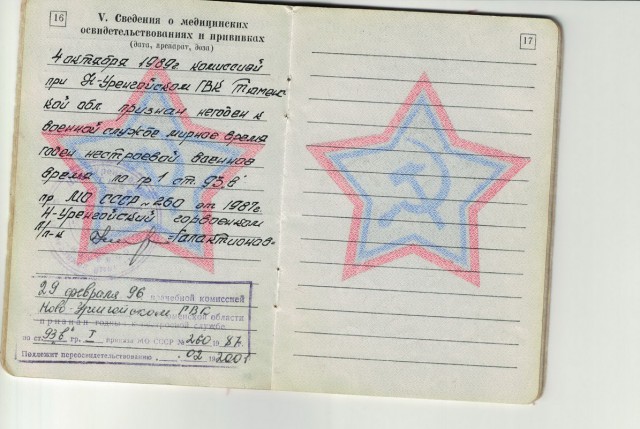 16
V. Сведения о медицинских
освидетельствованиях и прививках
(дата, препарат, доза)
4 октября 1989г комиссией
при Н-Уренгойском ГВК Тюменс-
кой обл. признан негоден к
военной службе мирное время
годен нестроевой военное
время по гр 1 ст. 93.б
пр МО СССР №260 от 1987г.
Н-Уренгойский горвоенком
п/п-к Галактионов
29 февраля 96 врачебной комиссией
Ново-Уренгойском ГВК
Тюменской области
ст. 93б гр. I приказа МО СССР № 260 19 87г.
Подлежит переосвидетельствованию . 02 . 2001
17